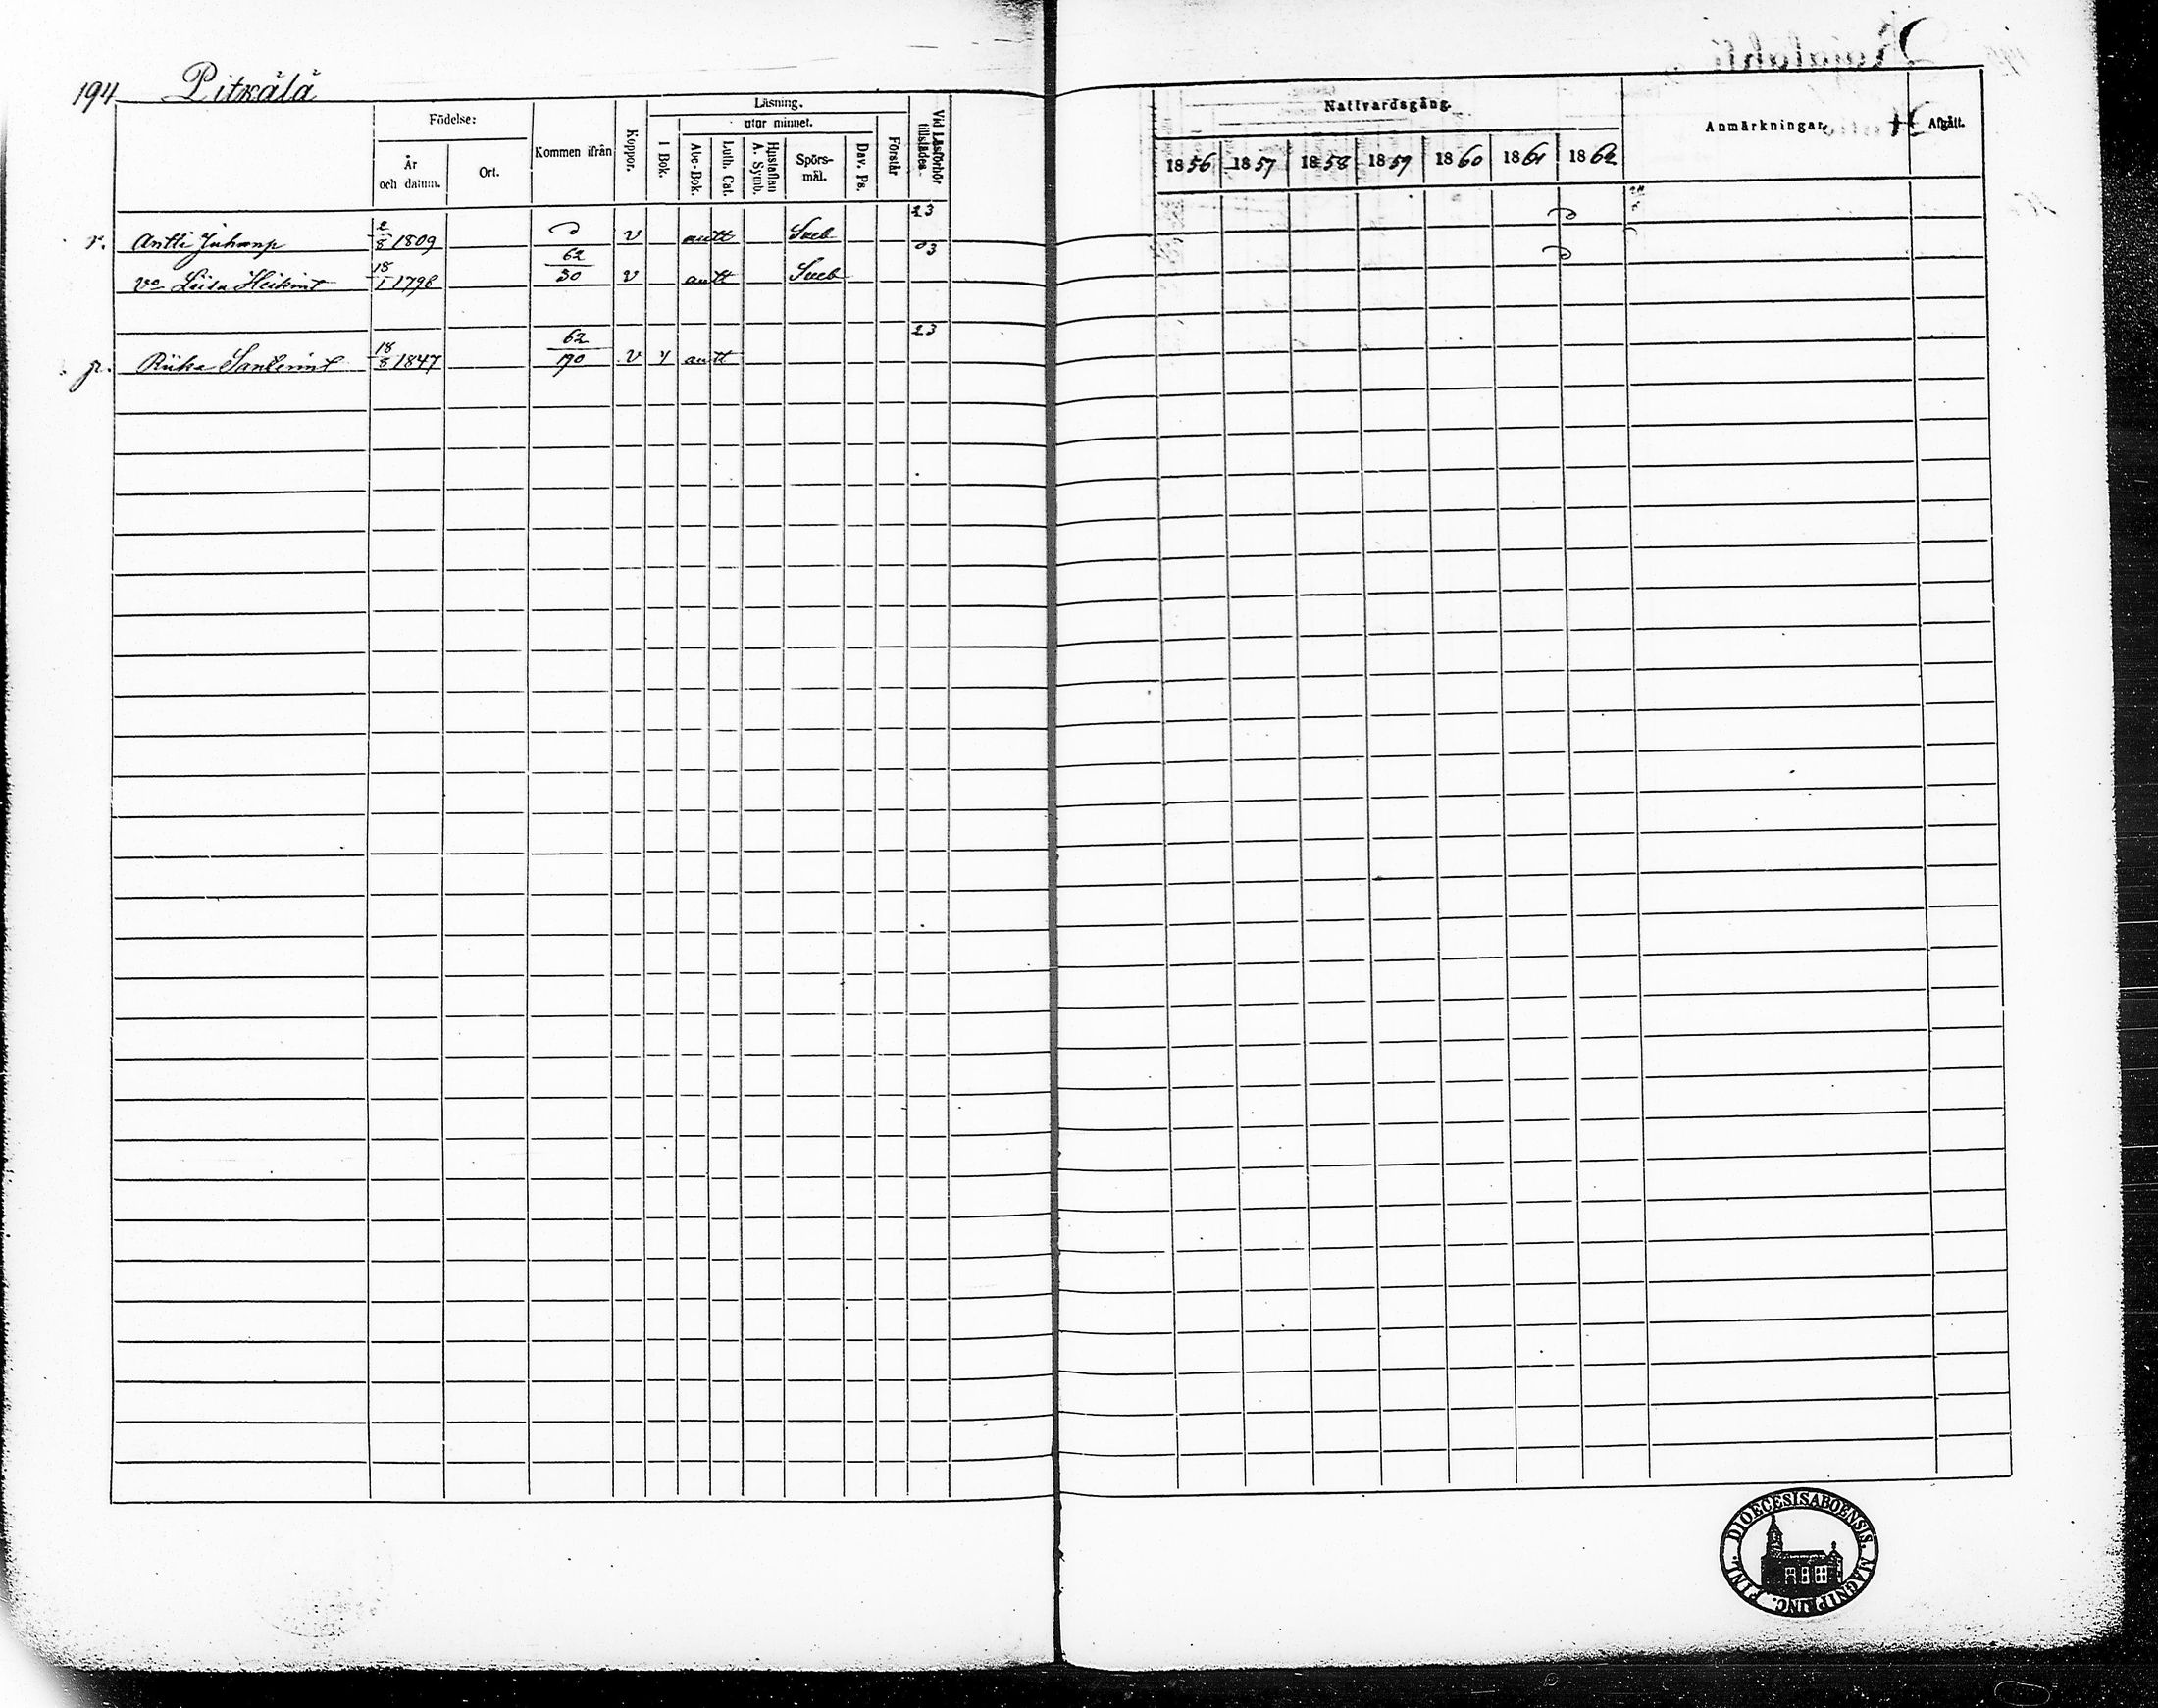 194 Pitkälä
Födelse: Kommen ifrån Koppor. Läsning. Vid Läsförhör tillstädes.
År och datum. Ort. I Bok. utur minnet. Förstår
Abc-Bok. Luth. Cat. Hustaflan A. Symb. Spörs-mål. Dav. Ps.
Nattvardsgång. Anmärkningar. Afgått.
1856 1857 1858 1859 1860 1861 1862
r. Antti Juhanp 2/8 1809 v autt Sveb 23
vo Liisa Heikint 18/1 1798 62/30 v autt Sveb 03
p. Riika Santerint 18/8 1847 62/190 v y autt 23
DIOECESIS ABOENSIS. MAGNI PRINC. FINL.